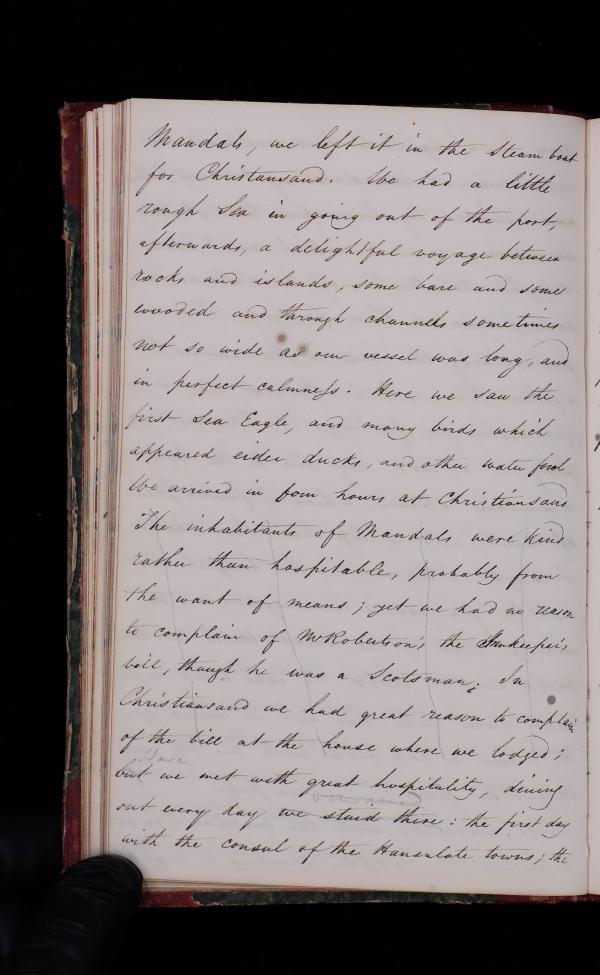 Mandals, we left it in the steam boat
for Christansand. We had a little
rough Sea in going out of the port,
afterwards, a delightful voyage between
rocks and islands, some bare and some
wooded and through channels sometimes
not so wide as our vessel was long, and
in perfect calmness. Here we saw the
first Sea Eagle, and many birds which
appeared eider ducks, and other water fowl
We arrived in four hours at Christiansand
The inhabitants of Mandals were kind
rather than hospitable, probably from
the want of means; yet we had no reason
to complain of Mr Robertson's the Innkeeper's
bill, though he was a Scotsman; In
Christiansand we had great reason to complain
of the bill at the house where we lodged;
Here
but we met with great hospitality, dining
out every day we staid there: the first day
with the consul of the Hansulate towns; the